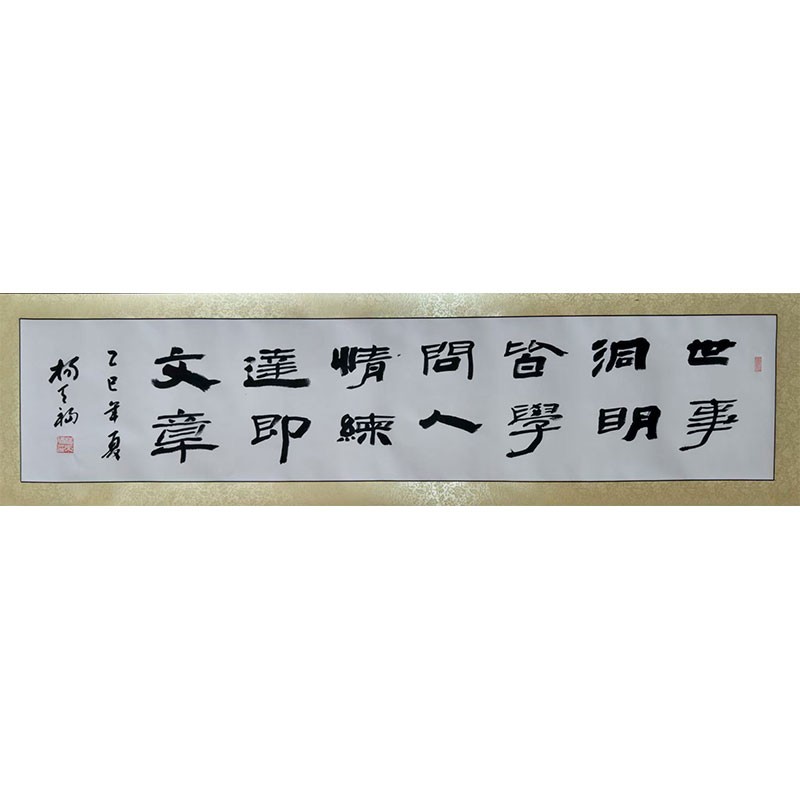 世事
洞明
皆學
問人
情練
達即
文章
乙巳年夏
楊天福